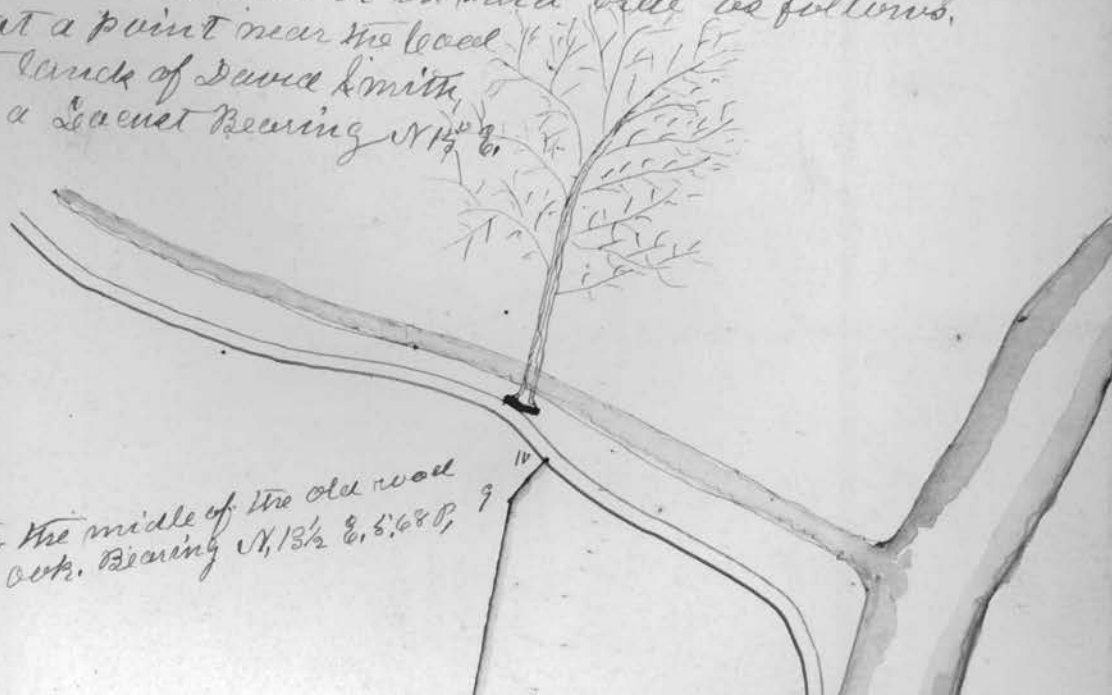 as follows.
at a point near the
lands of David Smith
a Locust Bearing N
10
9
the midle of the old road
oak. Bearing N, 13½ E, 5,68 P,